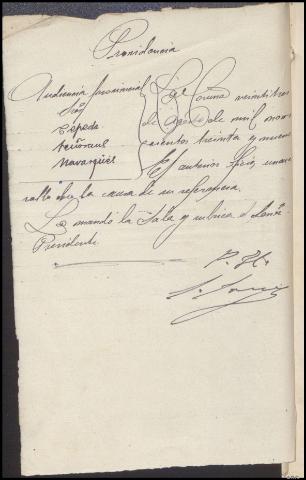 Providencia
Audiencia provincial
Sres
Cepeda
Navarguez
La Coruña veintitres
de Agosto de mil nove
cientos treinta y nueve
El anterior oficio unase
rollo de la causa de su referencia.
Lo mandó la Sala y rubrica el Señor
Presidente